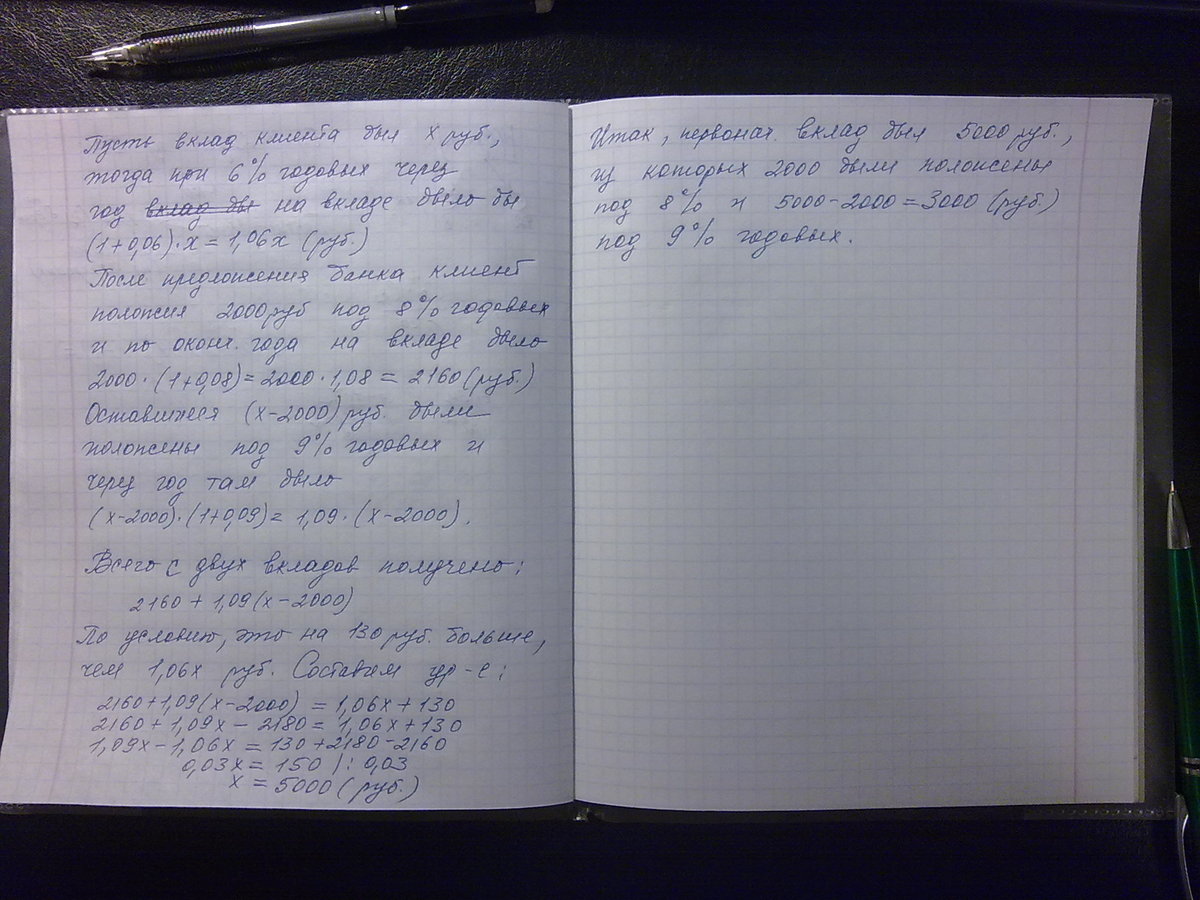 Пусть вклад клиента был x руб.,
тогда при 6% годовых через
год вклад бы на вкладе было бы
(1+0,06)·x = 1,06x (руб.)
После предложения банка клиент
положил 2000руб под 8% годовых
и по оконч. года на вкладе было
2000·(1+0,08)=2000·1,08 = 2160(руб.)
Оставшиеся (x-2000)руб. были
положены под 9% годовых и
через год там было
(x-2000)·(1+0,09)= 1,09·(x-2000).
Всего с двух вкладов получено:
2160 + 1,09(x-2000)
По условию, это на 130 руб. больше,
чем 1,06x руб. Составим ур-е:
2160+1,09(x-2000) = 1,06x+130
2160+1,09x-2180 = 1,06x+130
1,09x-1,06x = 130+2180-2160
0,03x = 150 |: 0,03
x = 5000 (руб.)
Итак, первонач. вклад был 5000 руб.,
из которых 2000 были положены
под 8% и 5000-2000=3000 (руб.)
под 9% годовых.